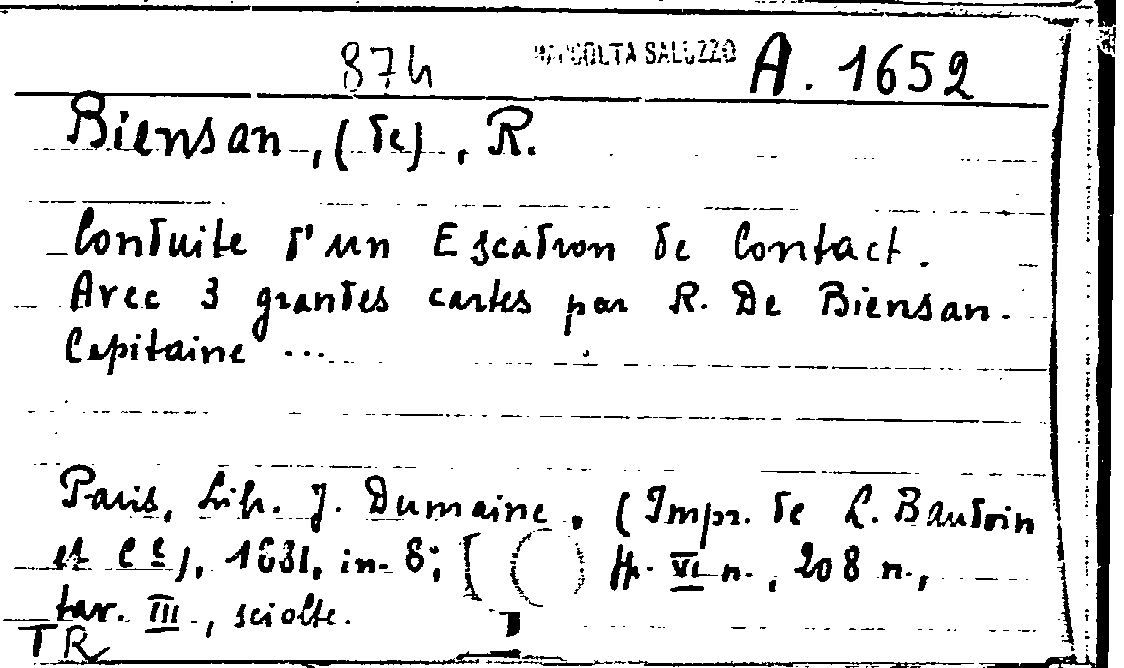 874 RACCOLTA SALUZZO A. 1652
Biensan, (de), R.
Conduite d'un Escadron de Contact.
Avec 3 grandes cartes par R. De Biensan.
Capitaine ...
Paris, Lib. J. Dumaine, (Impr. de L. Baudoin
et Cᵉ), 1881, in-8; [ ( ) pp. VI n., 208 n.,
tav. III, sciolte.
TR